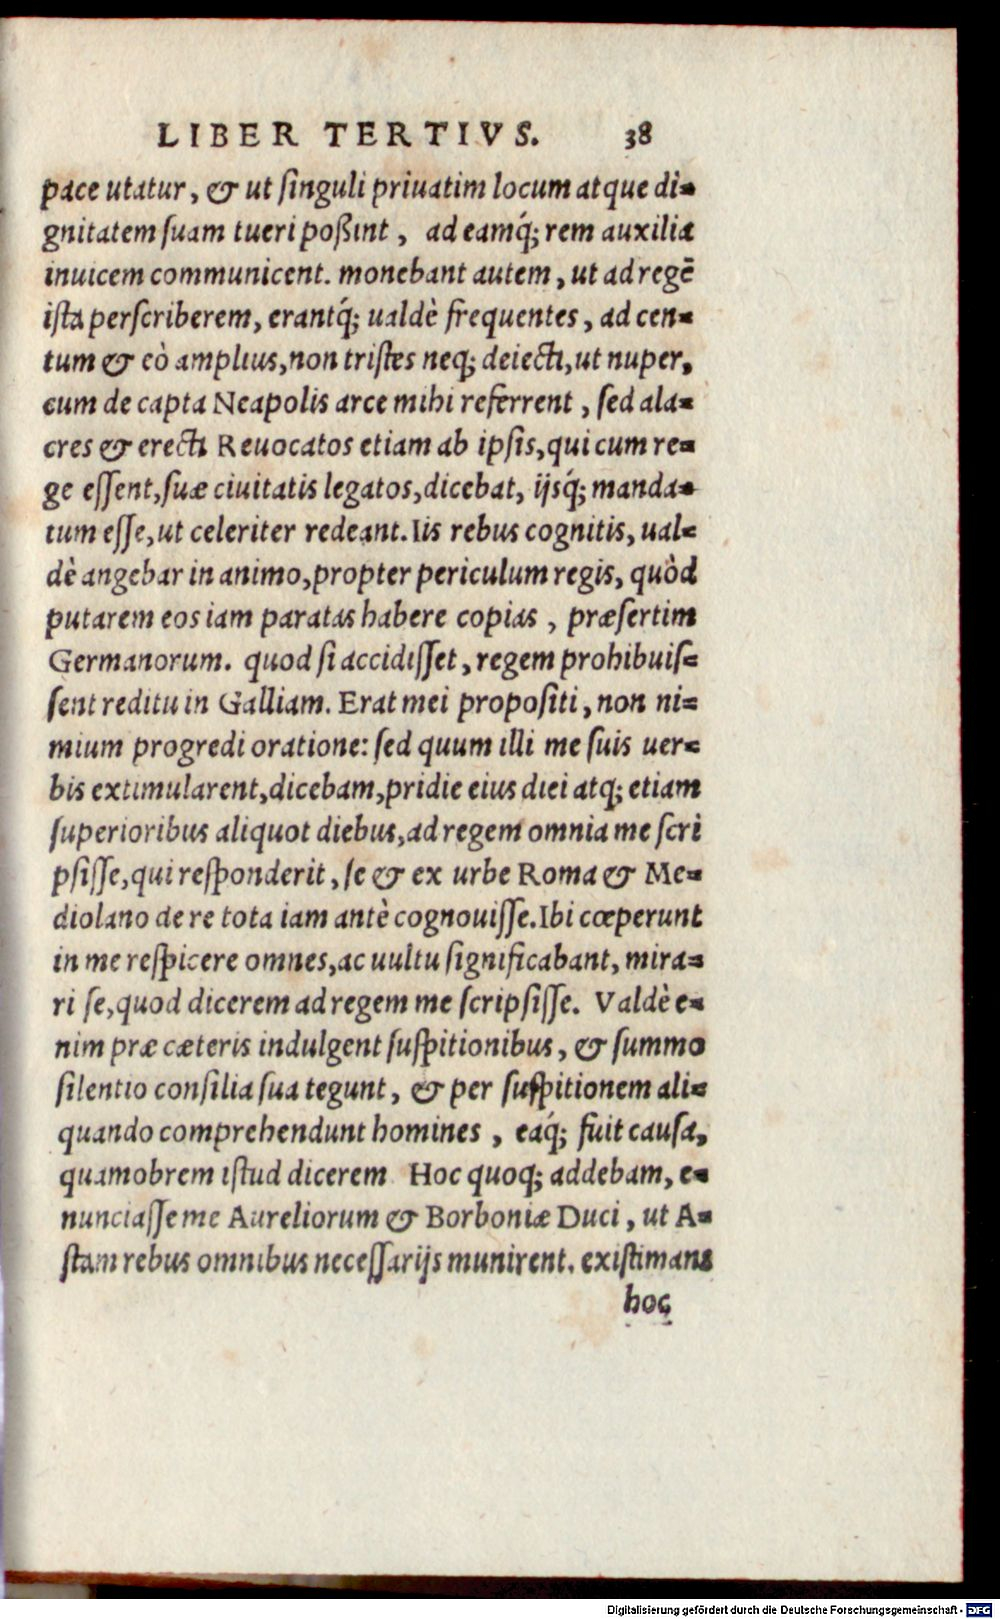 LIBER TERTIVS. 38
pace utatur, & ut singuli priuatim locum atque di-
gnitatem suam tueri poßint, ad eamq́; rem auxilia
inuicem communicent. monebant autem, ut ad regē
ista perscriberem, erantq́; ualdè frequentes, ad cen-
tum & eò amplius, non tristes neq; deiecti, ut nuper,
cum de capta Neapolis arce mihi referrent, sed ala-
cres & erecti Reuocatos etiam ab ipsis, qui cum re-
ge essent, suæ ciuitatis legatos, dicebat, ijsq́; manda-
tum esse, ut celeriter redeant. Iis rebus cognitis, ual-
dè angebar in animo, propter periculum regis, quòd
putarem eos iam paratas habere copias, præsertim
Germanorum. quod si accidisset, regem prohibuis-
sent reditu in Galliam. Erat mei propositi, non ni-
mium progredi oratione: sed quum illi me suis uer-
bis extimularent, dicebam, pridie eius diei atq; etiam
superioribus aliquot diebus, ad regem omnia me scri
psisse, qui responderit, se & ex urbe Roma & Me-
diolano de re tota iam antè cognouisse. Ibi cœperunt
in me respicere omnes, ac uultu significabant, mira-
ri se, quod dicerem ad regem me scripsisse. Valdè e-
nim præ cæteris indulgent suspitionibus, & summo
silentio consilia sua tegunt, & per suspitionem ali-
quando comprehendunt homines, eaq́; fuit causa,
quamobrem istud dicerem Hoc quoq; addebam, e-
nunciasse me Aureliorum & Borboniæ Duci, ut A-
stam rebus omnibus necessarijs munirent. existimans
hoc
Digitalisierung gefördert durch die Deutsche Forschungsgemeinschaft - DFG